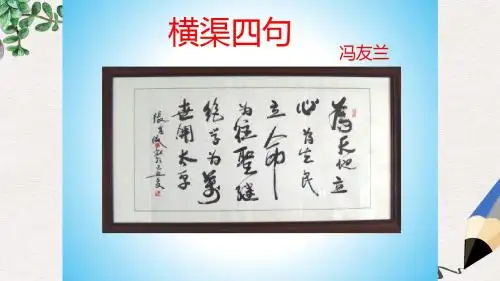 横渠四句
冯友兰
為天地立
心為生民
立命
为往聖继
绝学为万
世開太平